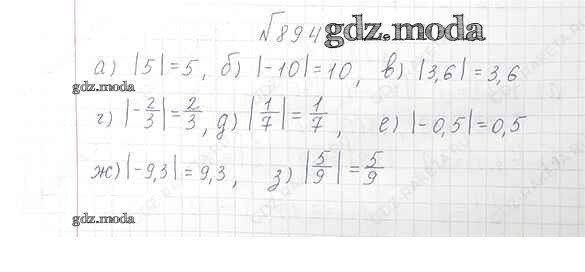 №894 gdz.moda
а) |5|=5, б) |-10|=10, в) |3,6|=3,6
gdz.moda
г) |-2/3|=2/3, д) |1/7|=1/7, е) |-0,5|=0,5
ж) |-9,3|=9,3, з) |5/9|=5/9
gdz.moda